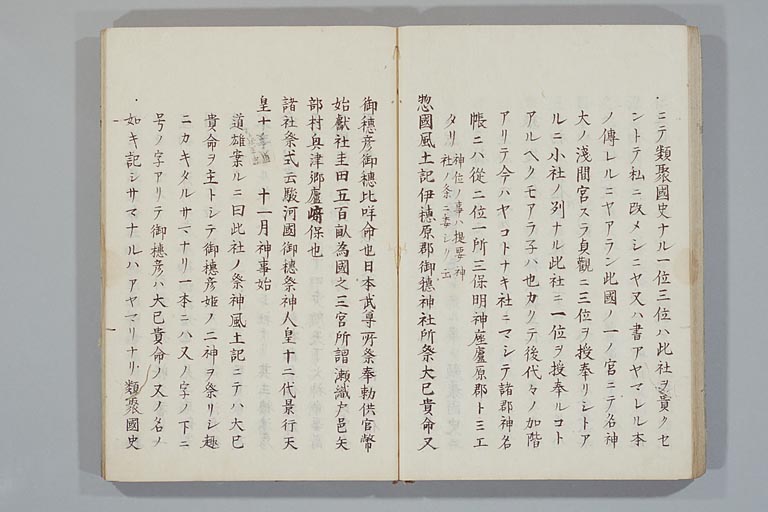 ニテ類聚國史ナル一位三位ハ此社ヲ貴クセ
ントテ私ニ改メシニヤ又ハ書アヤマレル本
ノ傳レルニヤアラン此國ノ一ノ宮ニテ名神
大ノ淺間宮スラ貞觀ニ三位ヲ授奉リシトア
ルニ小社ノ列ナル此社ニ一位ヲ授奉ルコト
アルヘクモアラ子ハ也カリテ後代々ノ加階
アリテ今ハヤコトナキ社ニマシテ諸郡神名
帳ニハ從二位一所三保明神座廬原郡トミエ
タリ 神位ノ事ハ提要神
社ノ条ニ委シリ云
惣國風土記伊穗原郡御穗神社所祭大巳貴命又
御穗彦御穗比咩命也日本武尊所祭奉勅供官幣
始獻社圭田五百畝為國之三宮所謂瀬織戸邑矢
部村奥津郷廬﨑保也
諸社祭式云駿河國御穗祭神人皇十二代景行天
皇十 十一月神事始
道雄案ルニ曰此社ノ祭神風土記ニテハ大巳
貴命ヲ主トシテ御穗彦姫ノ二神ヲ祭リシ趣
ニカキタルサマナリ一本ニハ又ノ字ノ下ニ
号ノ字アリテ御穗彦ハ大巳貴命ノ又ノ名ノ
如キ記シサマナルハアヤマリナリ類聚國史